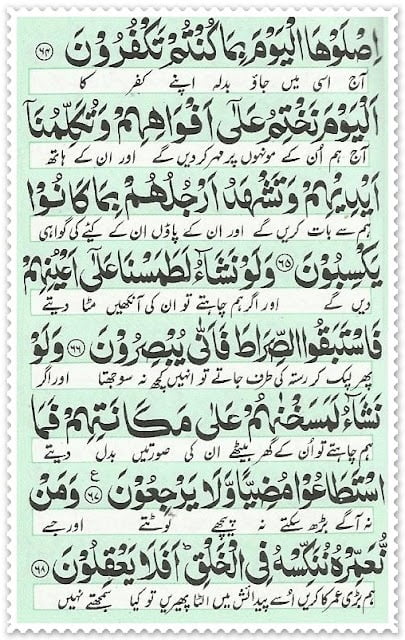 اِصْلَوْهَا الْيَوْمَ بِمَا كُنْتُمْ تَكْفُرُوْنَ ﴿۶۴﴾
آج اسی میں جاؤ بدلہ اپنے کفر کا
اَلْيَوْمَ نَخْتِمُ عَلٰٓى اَفْوَاهِهِمْ وَتُكَلِّمُنَآ
آج ہم اُن کے مونہوں پر مہر کر دیں گے اور ان کے ہاتھ
اَيْدِيْهِمْ وَتَشْهَدُ اَرْجُلُهُمْ بِمَا كَانُوْا
ہم سے بات کریں گے اور ان کے پاؤں اِن کے کیئے کی گواہی
يَكْسِبُوْنَ ﴿۶۵﴾ وَلَوْ نَشَآءُ لَطَمَسْنَا عَلٰٓى اَعْيُنِهِمْ
دیں گے اور اگر ہم چاہتے تو ان کی آنکھیں مٹا دیتے
فَاسْتَبَقُوا الصِّرَاطَ فَاَنّٰى يُبْصِرُوْنَ ﴿۶۶﴾ وَلَوْ
پھر لپک کر رستہ کی طرف جاتے تو انہیں کچھ نہ سوجھتا اور اگر
نَشَآءُ لَمَسَخْنٰهُمْ عَلٰى مَكَانَتِهِمْ فَمَا
ہم چاہتے تو اُن کے گھر بیٹھے ان کی صورتیں بدل دیتے
اسْتَطَاعُوْا مُضِيًّا وَّلَا يَرْجِعُوْنَ ﴿۶۷﴾ ع وَمَنْ
نہ آگے بڑھ سکتے نہ پیچھے لوٹتے اور جسے
نُّعَمِّرْهُ نُنَكِّسْهُ فِي الْخَلْقِ ؕ اَفَلَا يَعْقِلُوْنَ ﴿۶۸﴾
ہم بڑی عمر کا کریں اُسے پیدائش میں الٹا پھیریں تو کیا سمجھتے نہیں